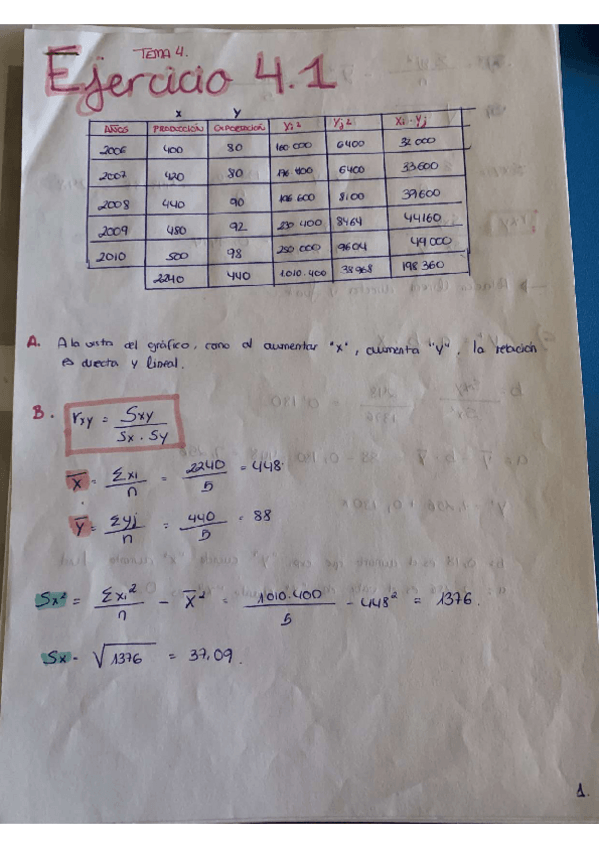 TEMA 4.
Ejercicio 4.1
x y
AÑOS PRODUCCIÓN EXPORTACIÓN Xi² Yj² Xi · Yj
2006 400 80 160 000 6400 32 000
2007 420 80 176 400 6400 33600
2008 440 90 8100 39600
2009 480 92 230 400 8464 44160
2010 500 98 250 000 9604 49 000
2240 440 1010.400 38968 198 360
A. A la vista del gráfico, como al aumentar "x", aumenta "y", la relación
es directa y lineal.
B. rxy = Sxy / Sx · Sy
X̄ = Σxi / n = 2240 / 5 = 448
Ȳ = Σyj / n = 440 / 5 = 88
Sx² = Σxi² / n - X̄² = 1010.400 / 5 - 448² = 1376.
Sx = √1376 = 37,09.
1.